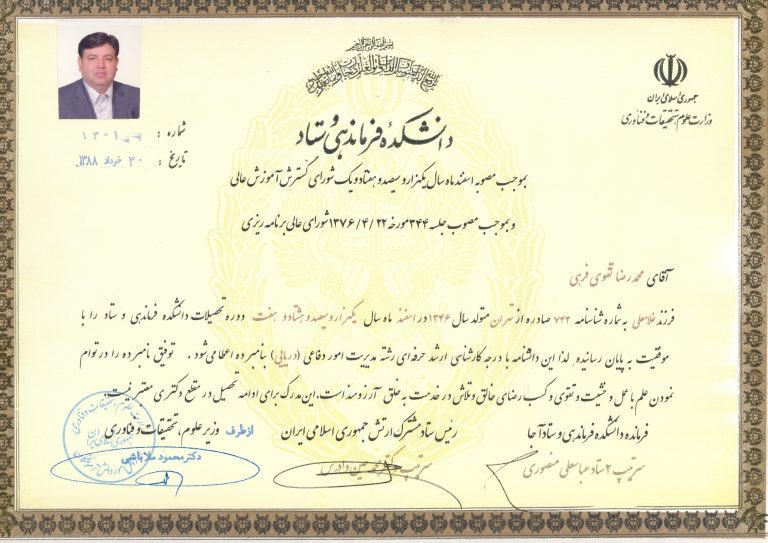 بسم الله الرحمن الرحیم
جمهوری اسلامی ایران
وزارت علوم، تحقیقات و فناوری
شماره :
تاریخ : ۳۰ خرداد ۱۳۸۸
دانشکده فرماندهی و ستاد
بموجب مصوبه اسفند ماه سال یکهزار و سیصد و هفتاد و یک شورای گسترش آموزش عالی
و بموجب مصوب جلسه ۳۴۴ مورخه ۱۳۷۶/۴/۲۲ شورای عالی برنامه ریزی
آقای محمدرضا تقوی فرهی
فرزند غلامعلی به شماره شناسنامه ۷۴۳ صادره از تهران متولد سال ۱۳۴۶ در اسفند ماه سال یکهزار و سیصد و هشتاد و هفت دوره تحصیلات دانشکده فرماندهی و ستاد را با
موفقیت به پایان رسانیده لذا این دانشنامه با درجه کارشناسی ارشد حرفه‌ای رشته مدیریت امور دفاعی (دریایی) بنامبرده اعطا می شود . توفیق نامبرده را در توام
نمودن علم با عمل و خشیت و تقوی و کسب رضای خالق و تلاش در خدمت به خلق آرزومند است. این مدرک برای ادامه تحصیل در مقطع دکتری معتبر نیست.
فرمانده دانشکده فرماندهی و ستاد آجا
سرتیپ ۲ ستاد عباسعلی منصوری
رئیس ستاد مشترک ارتش جمهوری اسلامی ایران
سرتیپ دادرس
از طرف وزیر علوم، تحقیقات و فناوری
دکتر محمود ملاباشی